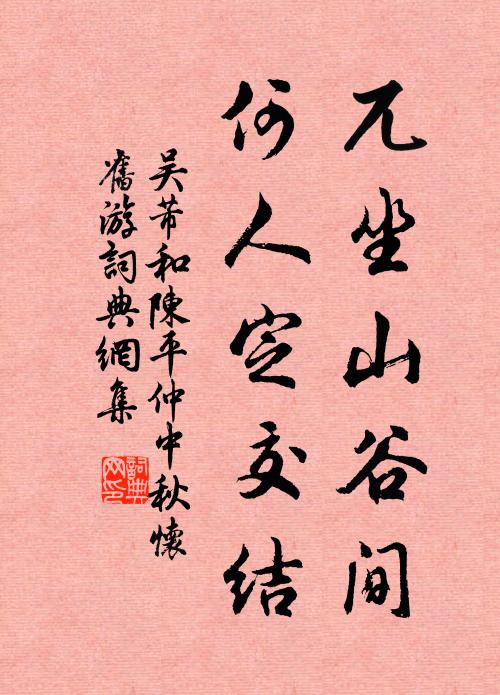 兀坐山谷間
何人定交結
吳芾和陳平仲中秋懷
舊游詞典網集
詞典
网印